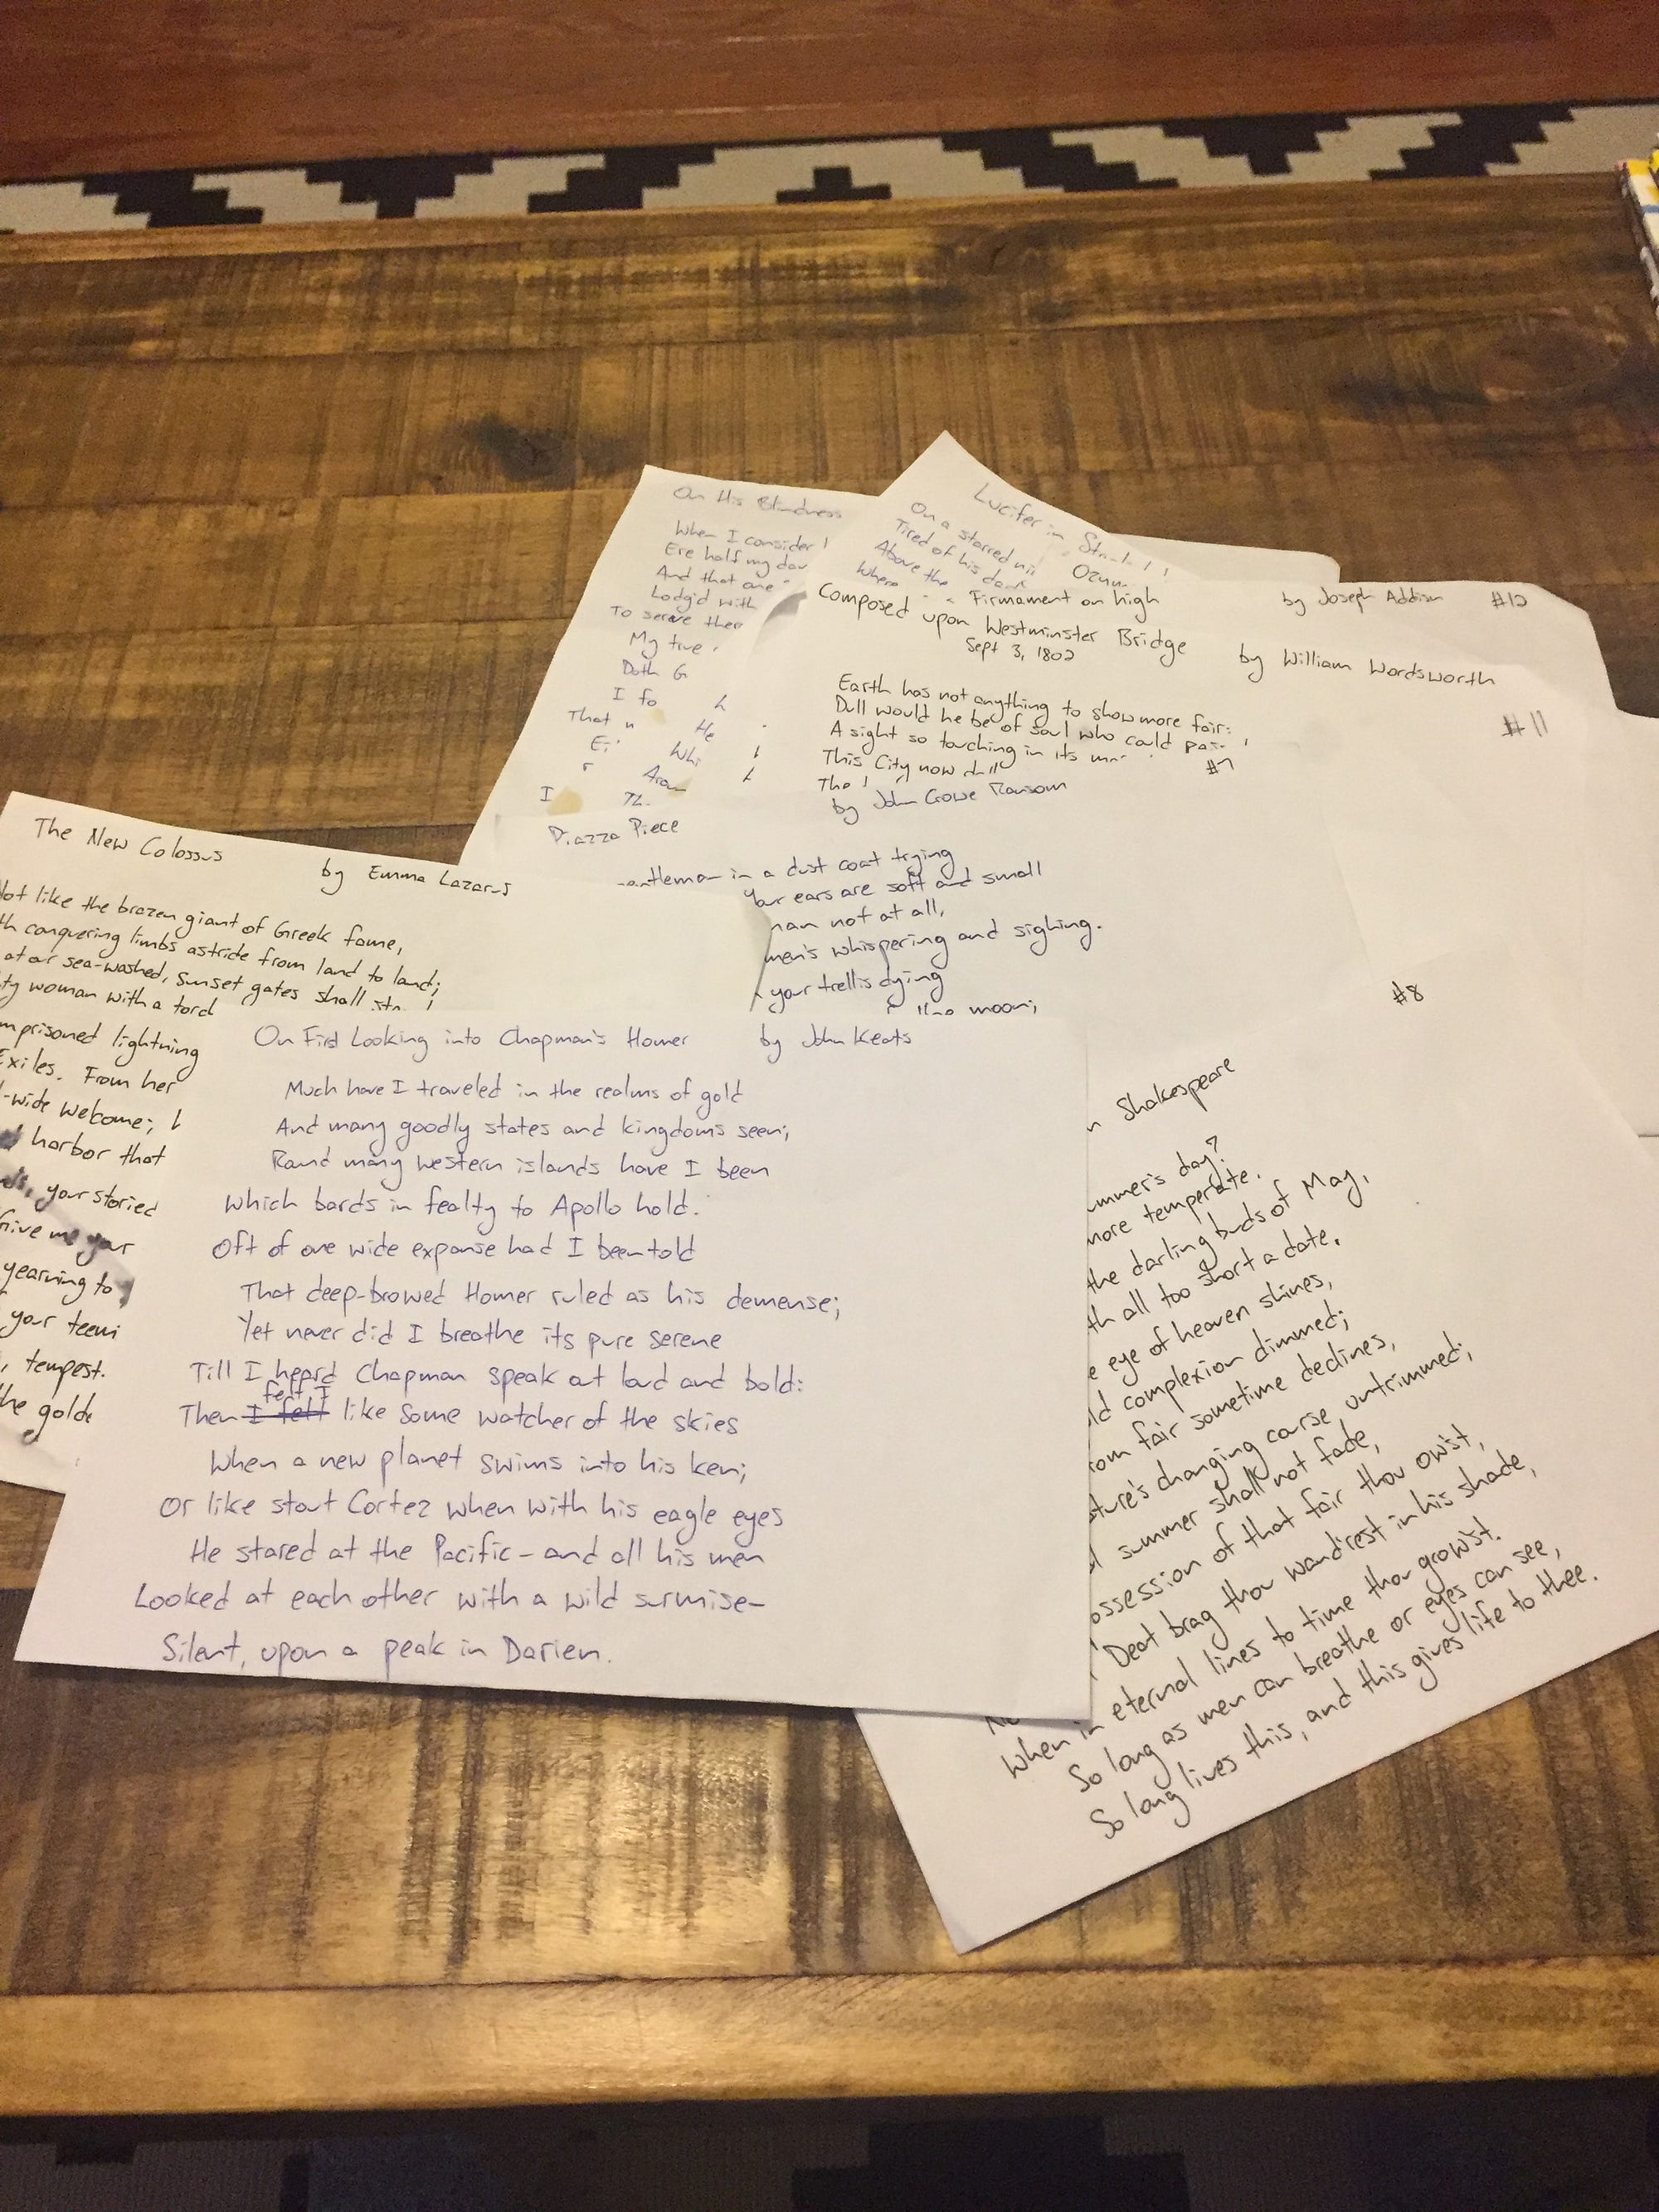 On His Blindness
When I consider
Ere half my day
And that one
Lodg'd with
To serve ther
My true
Doth G
I fo
That n He
Ei Whi
I Th
Lucifer in
On a starred ni
Tired of his da
Above the
Where
Firmament on high by Joseph Addison #12
Composed upon Westminster Bridge
Sept 3, 1802
by William Wordsworth
#11
Earth has not anything to show more fair:
Dull would he be of soul who could pass
A sight so touching in its
This City now
The
#7
by John Crowe Ransom
Piazza Piece
gentleman in a dust coat trying
Your ears are soft and small
man not at all,
men's whispering and sighing.
your trellis dying
moon;
The New Colossus
by Emma Lazarus
Not like the brazen giant of Greek fame,
th conquering limbs astride from land to land;
at our sea-washed, sunset gates shall
ty woman with a torch
mprisoned lightning
Exiles. From her
-wide welcome;
harbor that
your storied
Give me your
yearning to
your teemi
, tempest.
he golde
On First Looking into Chapman's Homer by John Keats
Much have I traveled in the realms of gold
And many goodly states and kingdoms seen;
Round many western islands have I been
Which bards in fealty to Apollo hold.
Oft of one wide expanse had I been told
That deep-browed Homer ruled as his demense;
Yet never did I breathe its pure serene
Till I heard Chapman speak out loud and bold:
felt I
Then I felt like some watcher of the skies
When a new planet swims into his ken;
Or like stout Cortez when with his eagle eyes
He stared at the Pacific - and all his men
Looked at each other with a wild surmise-
Silent, upon a peak in Darien.
#8
Shakespeare
ummer's day?
more temperate.
the darling buds of May,
th all too short a date.
e eye of heaven shines,
ld complexion dimmed;
rom fair sometime declines,
ature's changing course untrimmed;
l summer shall not fade,
ossession of that fair thou ow'st,
Deat brag thou wand'rest in his shade,
When in eternal lines to time thou grow'st.
So long as men can breathe or eyes can see,
So long lives this, and this gives life to thee.